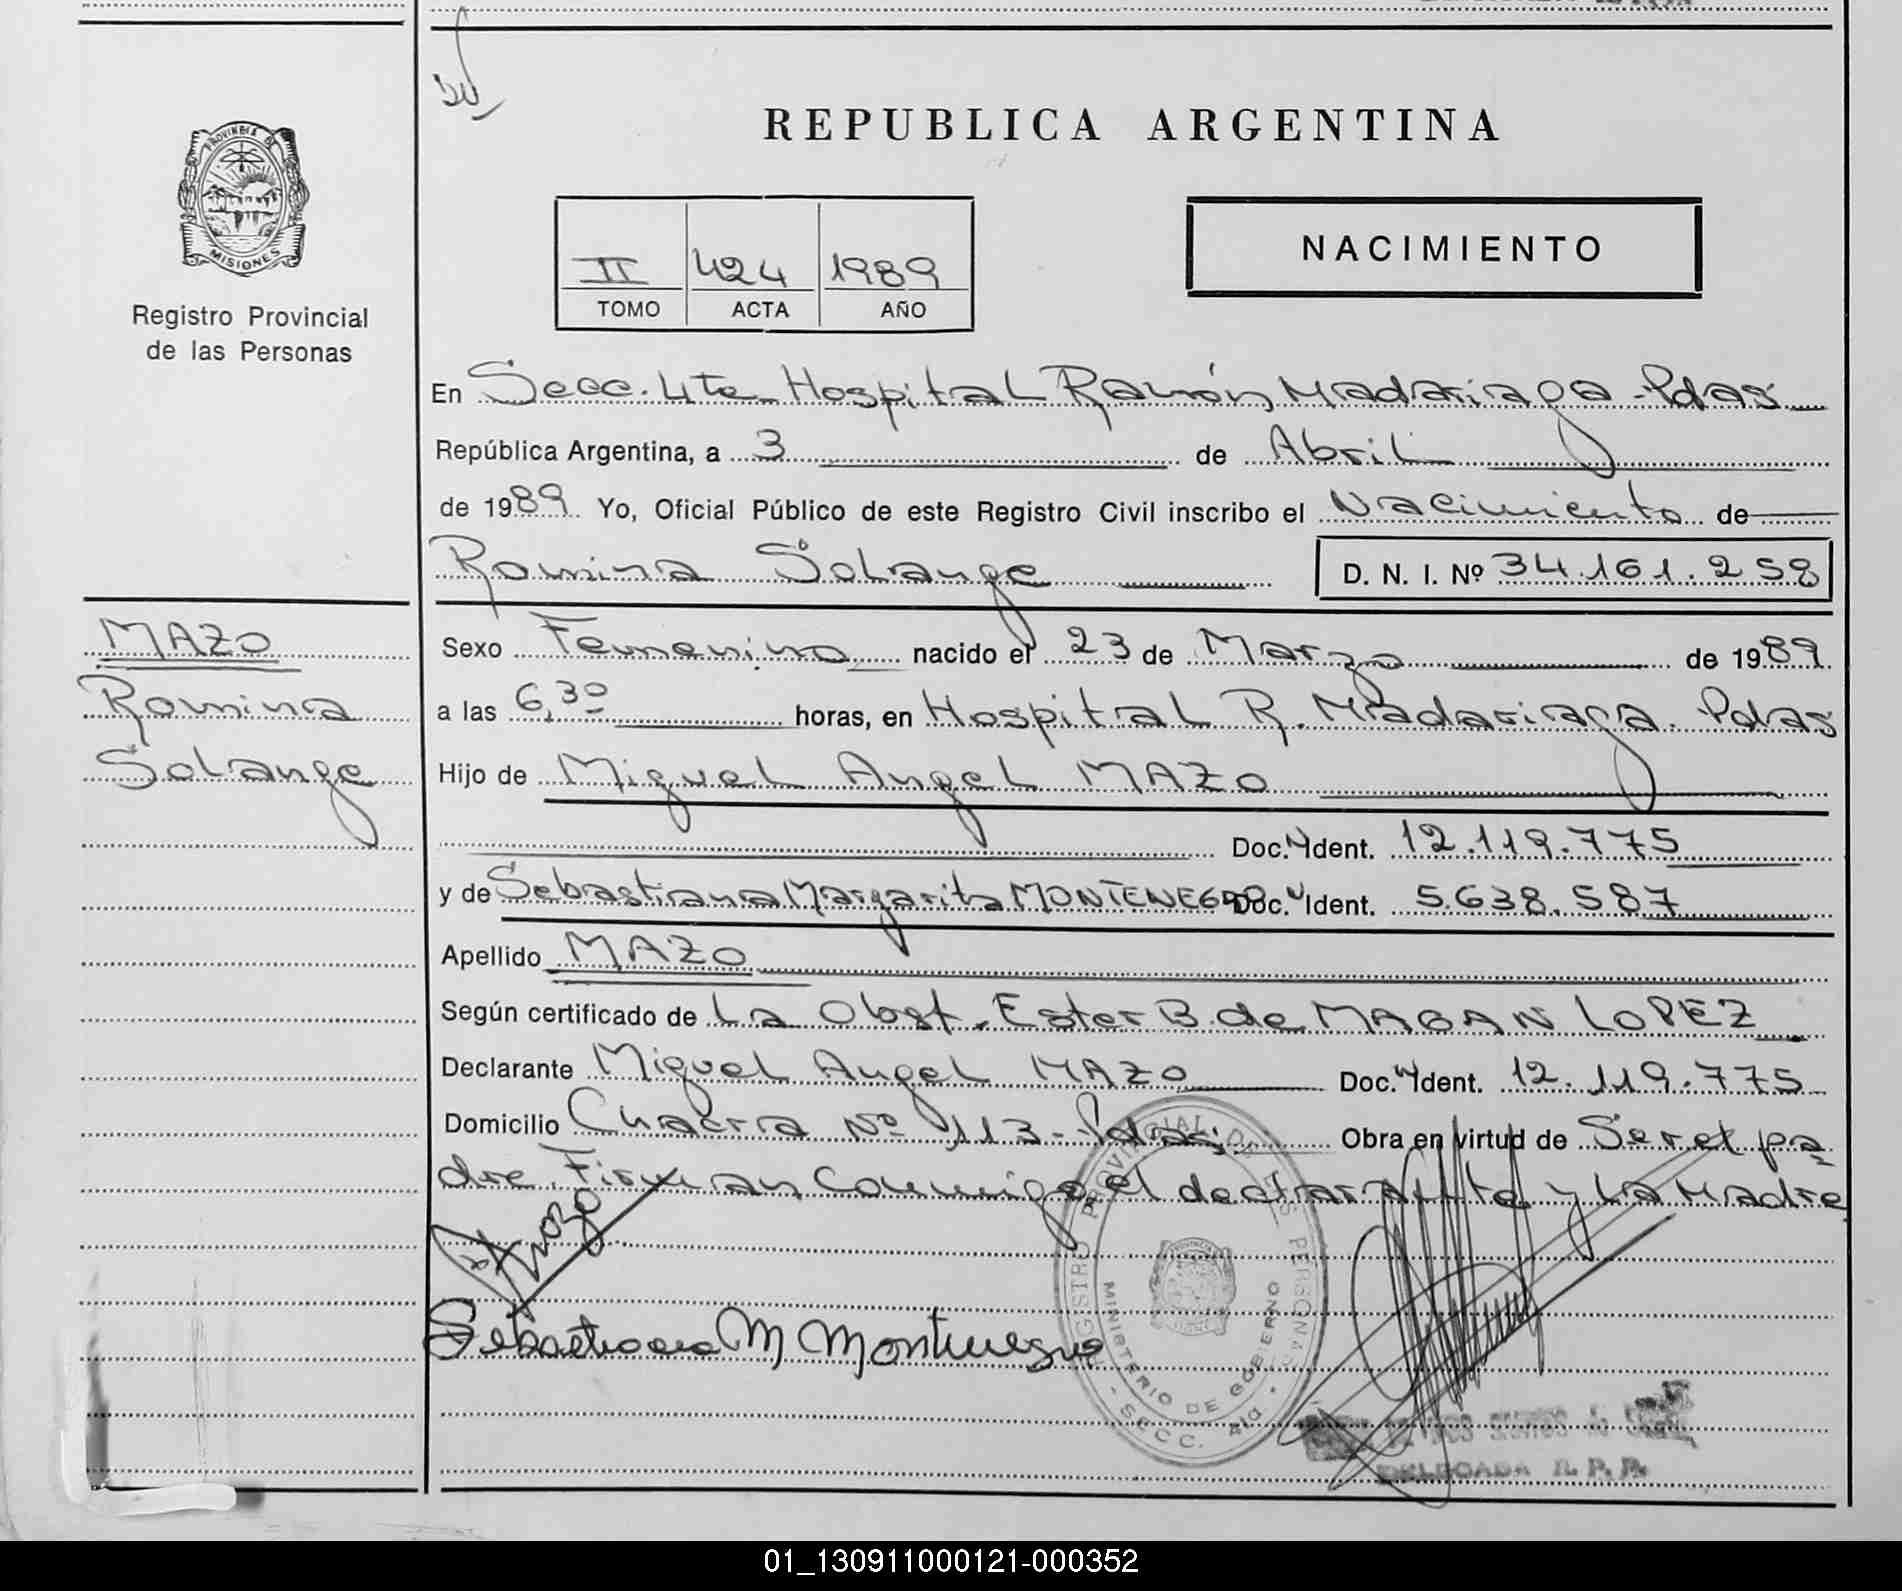 REPUBLICA ARGENTINA
PROVINCIA DE
MISIONES
Registro Provincial
de las Personas
II 424 1989
TOMO ACTA AÑO
NACIMIENTO
En Secc. 4ta Hospital Ramón Madariaga - Pdas
República Argentina, a 3 de Abril
de 1989 Yo, Oficial Público de este Registro Civil inscribo el Nacimiento de
Romina Solange D. N. I. Nº 34.161.258
MAZO
Romina
Solange
Sexo Femenino nacido el 23 de Marzo de 1989
a las 6,30 horas, en Hospital R. Madariaga. Pdas
Hijo de Miguel Angel MAZO
Doc. Ident. 12.119.775
y de Sebastiana Margarita MONTENEGRO Doc. Ident. 5.638.587
Apellido MAZO
Según certificado de La Obst. Ester B. de MAGAN LOPEZ
Declarante Miguel Angel MAZO Doc. Ident. 12.119.775
Domicilio Chacra Nº 113 - Pdas Obra en virtud de Ser el pa
dre. Firman Conmigo el declarante y La Madre
Sebastiana M Montenegro
REGISTRO PROVINCIAL DE LAS PERSONAS
MINISTERIO DE GOBIERNO
SECC. 4ta
DELEGADA R. P. P.
01_130911000121-000352